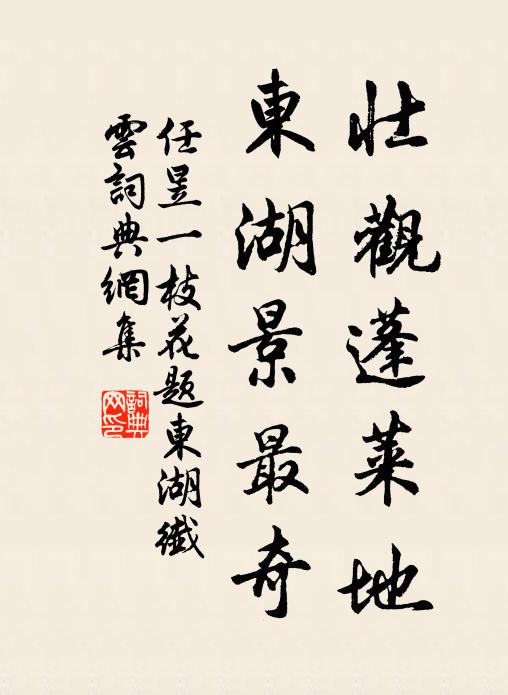 壯觀蓬萊地
東湖景最奇
任昱一枝花題東湖纖
雲詞典網集
詞典
网印